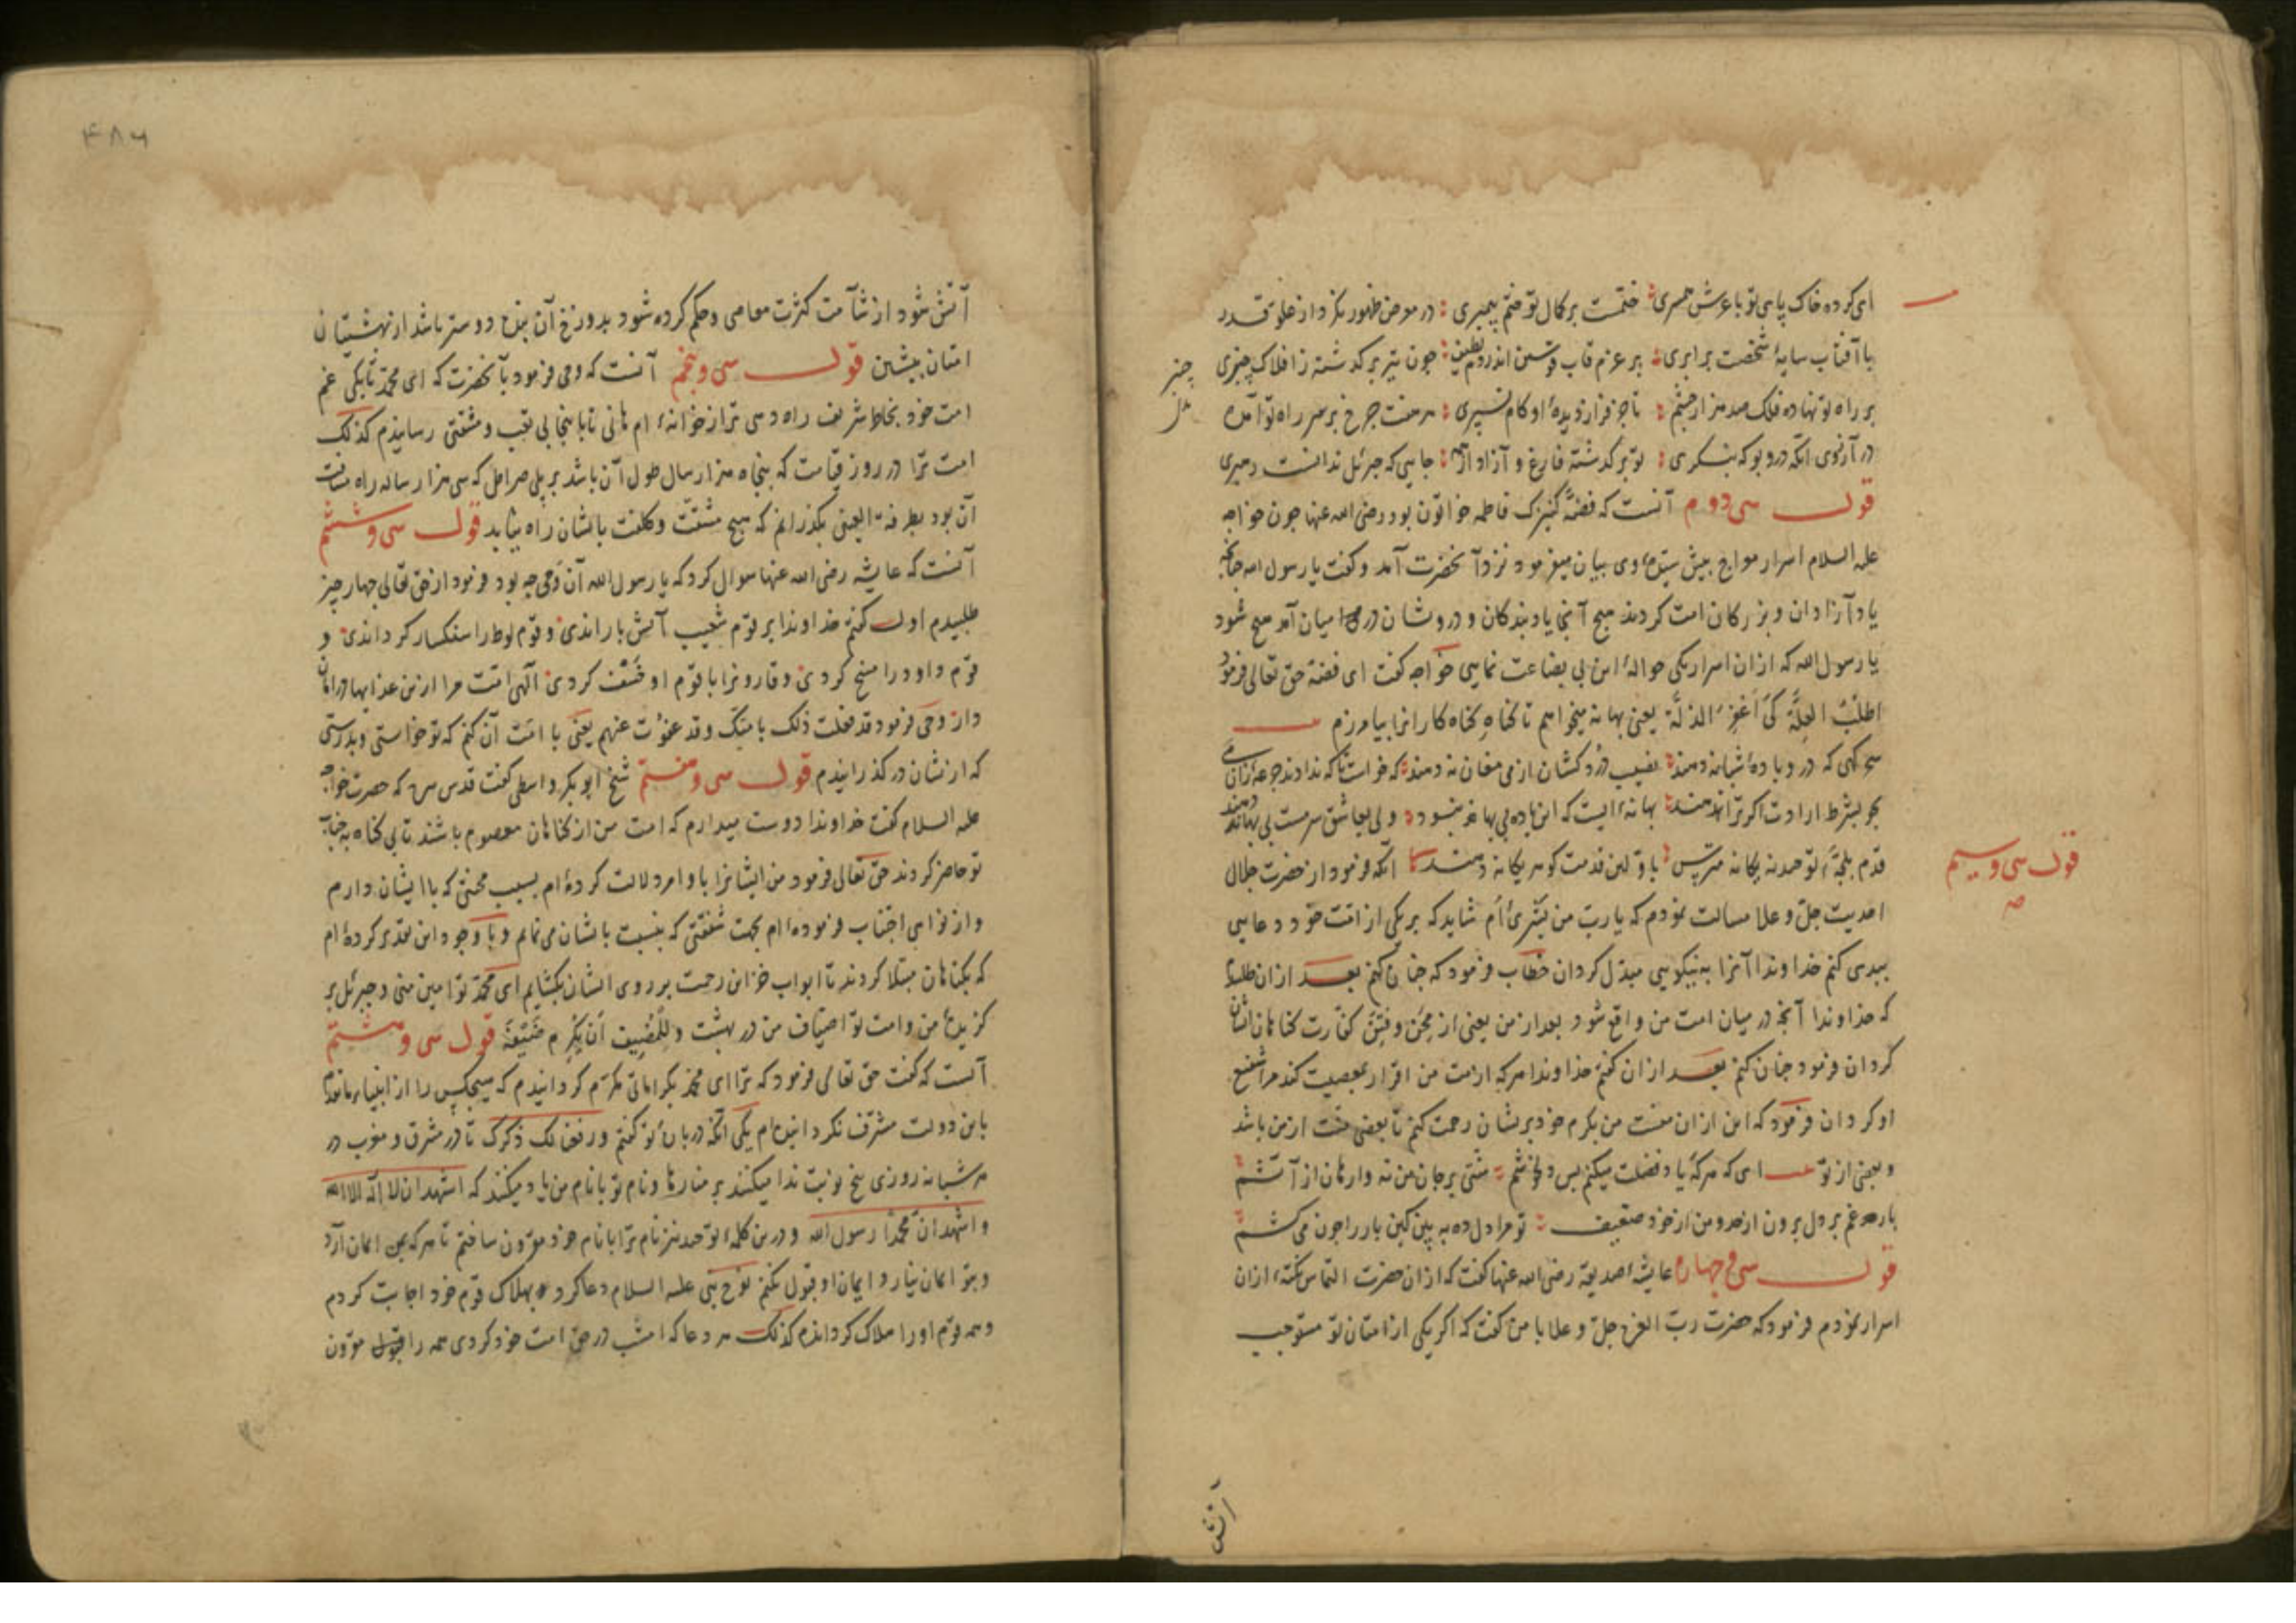 ای کرده خاک پای تو با عرش همسری ختمست بر کمال تو ختم پیمبری در معرض ظهور نکرد از علو قدر
با آفتاب سایهٔ شخصت برابری بر عزم قاب قوسین اندر دم چون تیر بر گذشته ز افلاک چنبری
چنبر
بر راه تو نهاده فلک صد هزار چشم تا جز فراز دیدهٔ او کام نسپری هر هفت چرخ بر سر راه تو آمده
در آرزوی آنکه درو بو که بنگری تو بر گذشته فارغ و آزاد از همه جایی که جبرئل ندانست رهبری
قول سی دوم آنست که فضّه کنیزک فاطمه خواتون بود رضی الله عنها چون خواجه
علیه السلام اسرار معراج پیش سیّدهٔ وی بیان میفرمود نزد آنحضرت آمد و کفت یا رسول الله چنانکه
یاد آزادان و بزرکان امت کردند هیچ آنجا یاد بندکان و درویشان در میان آمد هیچ شود
یا رسول الله که از ان اسرار یکی حوالهٔ این بی بضاعت نمایی خواجه کفت ای فضّه حق تعالی فرمود
اطلبُ العِلَّة کَی اَغفِرَ الذلَّة یعنی بهانه میخواهم تا کناه کناه کارانرا بیامرزم
سحرکهی که درو بادهٔ شبانه دهند نصیب دُرد کشان از می مغانه دهند
بجو بشرط ارادت اکر ترا ندهند بهانه‌ایست که این باده بی بهانه ولی بعاشق سرمست بی بهانه دهند
قول سی و سیم
قدم بلجّهٔ توحید نه یکانه مترس باولین قدمت کوهر یکانه دهند آنکه فرمود از حضرت جلال
احدیت جلّ و علا مسالت نمودم که یا ربّ من بَشَری‌ٔاَم شاید که بر یکی از امّت خود دعایی
ببدی کنم خداوندا آنرا به نیکویی مبدّل کردان خطاب فرمود که چنان کنم بعد از ان طلبیدم
که خداوندا آنچه در میان امت من واقع شود بعد از من یعنی از مِحَن و فِتَن کفارت کناهان ایشان
کردان فرمود چنان کنم بعد از ان کفتم خداوندا هرکه از امت من اقرار بمعصیت کند مرا شفیع
او کردان فرمود که این از ان منست من بکرم خود بریشان رحمت کنم تا بعضی از من باشد
و بعضی از تو ای که هرکه یاد فضلت میکنم بس دلخوشم منّتی بر جان من نه وارهان از آتشم
بار صد غم بر دل برون از حد و من از خود ضعیف تو مرا دل ده به بین کین بار را چون می کشم
قول سی و چهارم عایشهٔ صدیقه رضی الله عنها کفت که از ان حضرت التماس نکتهٔ از ان
اسرار نمودم فرمود که حضرت ربّ العزه جلّ و علا با من کفت که اکر یکی از امتان تو مستوجب
آتش
۴۸۶
آتش شود از شآمت کثرت معاصی و حکم کرده شود بدوزخ آن بنده دوستر باشد از بهشتیان
امتان پیشین قول سی و پنجم آنست که وحی فرمود بآنحضرت که ای محمّد تا بکی غم
امت خود بخاطر شریف راه دهی ترا از خوانهٔ ام هانی تا باینجا بی تعب و مشقتی رسانیدم کذلک
امت ترا در روز قیامت که پنجاه هزار سال طول آن باشد بر پل صراط که سی هزار ساله راه مسافت
آن بود بطرفة العینی بکذرانم که هیچ مشقت و کلفت بایشان راه نیابد قول سی و ششم
آنست که عایشه رضی الله عنها سوال کرد که یا رسول الله آن وَحی چه بود فرمود از حق تعالی چهار چیز
طلبیدم اول کفتم خداوندا بر قوم شعیب آتش باراندی و قوم لوط را سنکسار کرداندی و
قوم داود را مسخ کردی و قارونرا با قوم او خَسْف کردی الٓهی امّت مرا ازین عذابها در امان
دار وحی فرمود قد فعلت ذلک بامتک و قد عفوُت عنهم یعنی با امّت آن کنم که تو خواستی و بدرستی
که ازیشان در کذرانیدم قول سی و هفتم شیخ ابو بکر واسطی کفت قدس سره که حضرت خواجه
علیه السلام کفت خداوندا دوست میدارم که امت من از کناهان معصوم باشند تا بی کناه به جناب
تو حاضر کردند حق تعالی فرمود من ایشانرا باوامر دلالت کرده‌ٔام بسبب محبتی که با ایشان دارم
و از نواهی اجتناب فرموده‌ٔام بجهت شفقتی که بنسبت بایشان می نمایم و با وجود این تقدیر کرده‌ٔام
که بکناهان مبتلا کردند تا ابواب خزاین رحمت بر روی ایشان بکشایم ای محمّد تو امین منی و جبرئل بر
کزیدهٔ من و امت تو اضیاف من در بهشت وللمُضِیف اَن یُکْرِم ضَیْفَهُ قول سی و هشتم
آنست که کفت حق تعالی فرمود که ترا ای محمّد بکراماتی مکرّم کردانیدم که هیچکس را از انبیاء ماتقدّم
باین دولت مشرّف نکردانیده‌ام یکی آنکه دربارهٔ تو کفتم ورفعنا لک ذکرک تا در مشرق و مغرب در
هر شبانه روزی پنج نوبت ندا میکنند بر منارها و نام تو با نام من یاد میکنند که اشهد ان لا اله الا الله
و اشهد ان محمّدا رسول الله و درین کلمهٔ توحید نیز نام ترا با نام خود مقرون ساختم تا هرکه بمن ایمان آرد
و بتو ایمان نیارد ایمان او قبول نکنم نوح نبی علیه السلام دعا کرد بهلاک قوم خود اجابت کردم
و همه قوم او را هلاک کردانیدم کذلک هر دعا که امشب در حق امت خود کردی همه را قبول مقرون